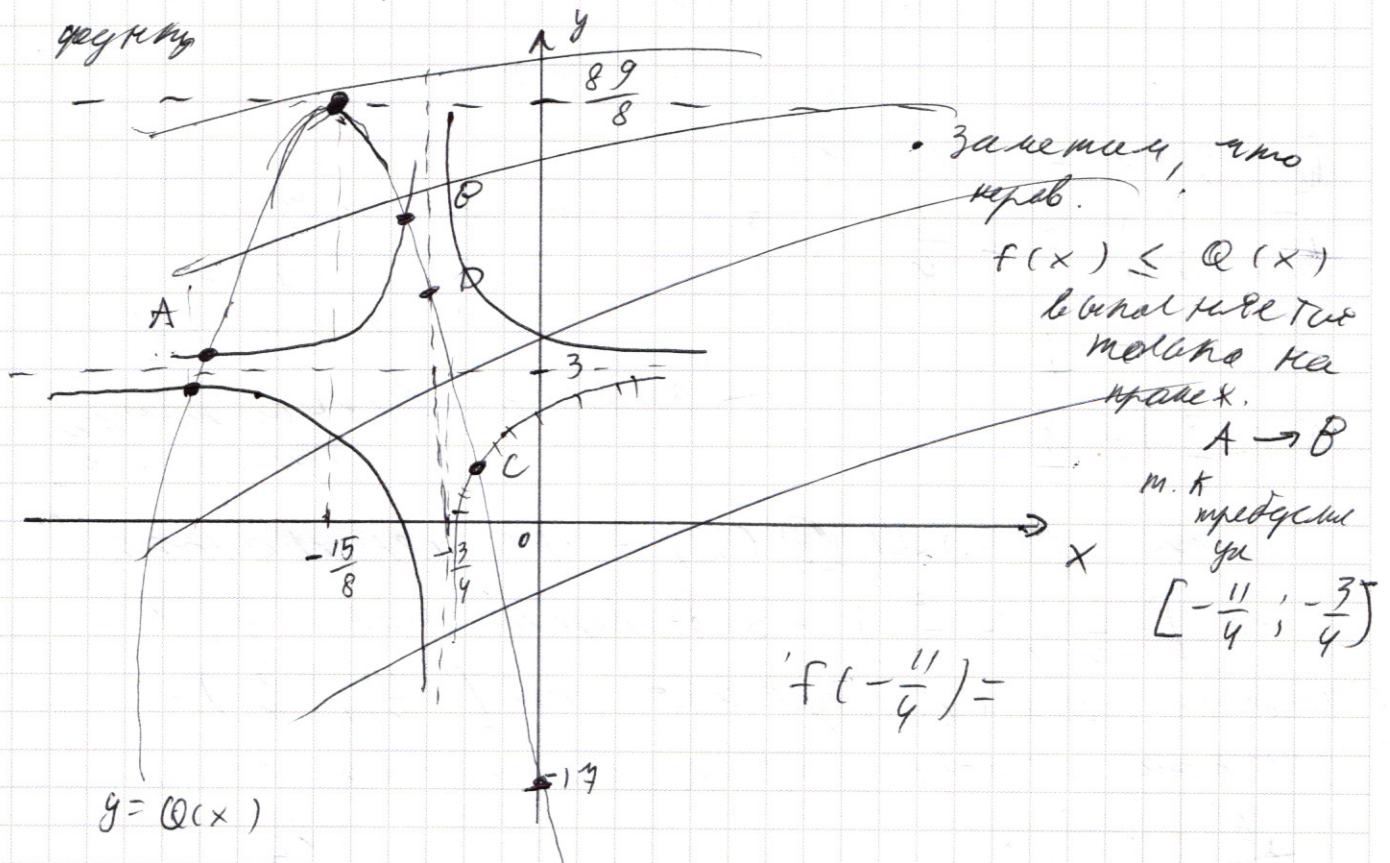 функц
y
89
8
• Заметим, что
нерав.
f(x) ≤ Q(x)
выполняется
только на
A → B
т.к
требуем
[-11/4 ; -3/4]
A
B
D
3
C
-15/8
-3/4
0
x
f(-11/4) =
-17
y = Q(x)